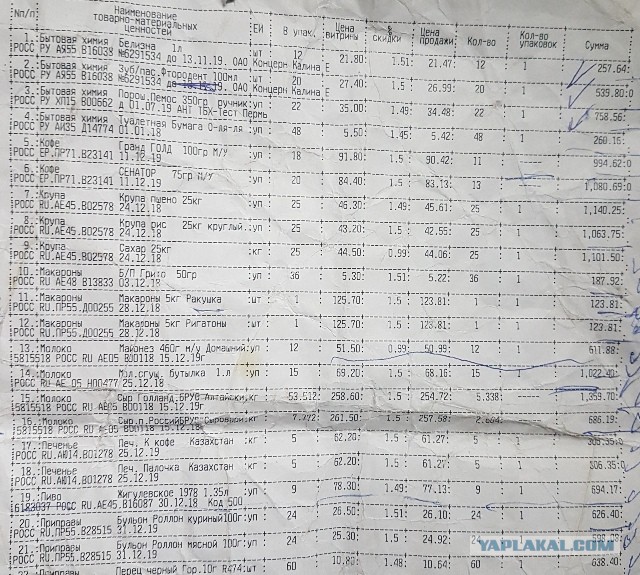 Nп/п Наименование товарно-материальных ценностей ЕИ В упак. Цена витрины скидки Цена продажи Кол-во Кол-во упаковок Сумма
1.:Бытовая химия Белизна 1л шт 12 21.80: 1.51: 21.47: 12 1 257.64:
РОСС РУ АЯ55 В16039 №6291534 до 13.11.19. ОАО Концерн Калина Е
2. Бытовая химия Зуб/пас.Фтородент 100мл шт 20 27.40: 1.5 : 26.99: 20 1 539.80:
РОСС РУ АЯ55 В16038 №6291534 до ОАО Концерн Калина Е
3. Бытовая химия Порош.Пемос 350гр ручник:уп 22 35.00: 1.49: 34.48: 22 1 758.56:
РОСС РУ ХП15 В00662 д 01.07.19 АНТ ТБХ-Тест Пермь
4. Бытовая химия Туалетная бумага О-ля-ля :уп 48 5.50: 1.45: 5.42: 48 1 260.16:
РОСС РУ АИ35 Д14774 01.01.18
5. Кофе Гранд ГОЛД 100гр М/У :уп : 18 91.80: 1.5 : 90.42: 11 994.62:
РОСС ЕР.ПР71.В23141 11.12.19
6. Кофе СЕНАТОР 75гр М/У :уп : 20 84.40: 1.5 : 83.13: 13 1,080.69:
РОСС ЕР.ПР71.В23141 11.12.19
7. Крупа Крупа пшено 25кг :уп : 25 46.30: 1.49: 45.61: 25 1 1,140.25:
РОСС RU.АЕ45.В02578 24.12.18
8. Крупа Крупа рис 25кг круглый.:уп : 25 43.20: 1.5 : 42.55: 25 1 1,063.75:
РОСС RU.АЕ45.В02578 24.12.18
9. Крупа Сахар 25кг :кг : 25 44.50: 0.99: 44.06: 25 1 1,101.50:
РОСС RU.АЕ45.В02578 24.12.18
10. Макароны Б/П Григо 50гр :уп : 36 5.30: 1.51: 5.22: 36 1 187.92:
РОСС RU АЕ48 В13833 03.12.18
11. Макароны Макароны 5кг Ракушка :шт : 1 125.70: 1.5 : 123.81: 1 1 123.81:
РОСС RU.ПР55.Д00255 28.12.18
12. Макароны Макароны 5кг Ригатоны :шт : 1 125.70: 1.5 : 123.81: 1 1 123.81:
РОСС RU.ПР55.Д00255 28.12.18
13. Молоко Майонез 460г м/у Домашний:уп : 12 51.50: 0.99: 50.99: 12 1 611.88:
5815518 РОСС RU АЕ05 В00118 15.12.19г
14. Молоко Мол.сгущ. бутылка 1.л :уп : 15 69.20: 1.5 : 68.16: 15 1 1,022.40:
РОСС RU.АЕ.05.Н00477 25.12.18
15. Молоко Сыр Голланд.БРУС Алтайски:кг : 53.512: 258.60: 1.5 : 254.72: 5.338: 1,359.70:
5815518 РОСС RU АЕ05 В00118 15.12.19г
16. Молоко Сыр.п.РоссийБРУС 261.50: 1.5 : 257.58: 2.664: 686.19:
5815518 РОСС RU АЕ05 В00118 15.12.18г
17. Печенье Печ. К кофе Казахстан :кг : 5 62.20: 1.5 : 61.27: 5 1
РОСС RU.АЮ14.В01278 25.12.19
18. Печенье Печ. Палочка Казахстан :кг : 5 62.20: 1.5 : 61.27: 5 1 306.35:
РОСС RU.АЮ14.В01278 25.12.19
19. Пиво Жигулевское 1978 1.35л :уп : 9 78.30: 1.49: 77.13: 9 1 694.17:
6183037 РОСС RU.АЕ45.В16087 30.12.18 Код 500
20. Приправы Бульон Роллтон куриный100г:уп : 24 26.50: 1.51: 26.10: 24 1 626.40:
РОСС RU.ПР55.В28515 31.12.19
21. Приправы Бульон Роллтон мясной 100г:уп : 24 25.30: 1.5 : 24.92:
РОСС RU.ПР55.В28515 31.12.19
22. Приправы Перец черный Гор.10г R474:шт : 60 10.80: 1.48: 10.64: 60 1 638.40:
YAPLAKAL.COM